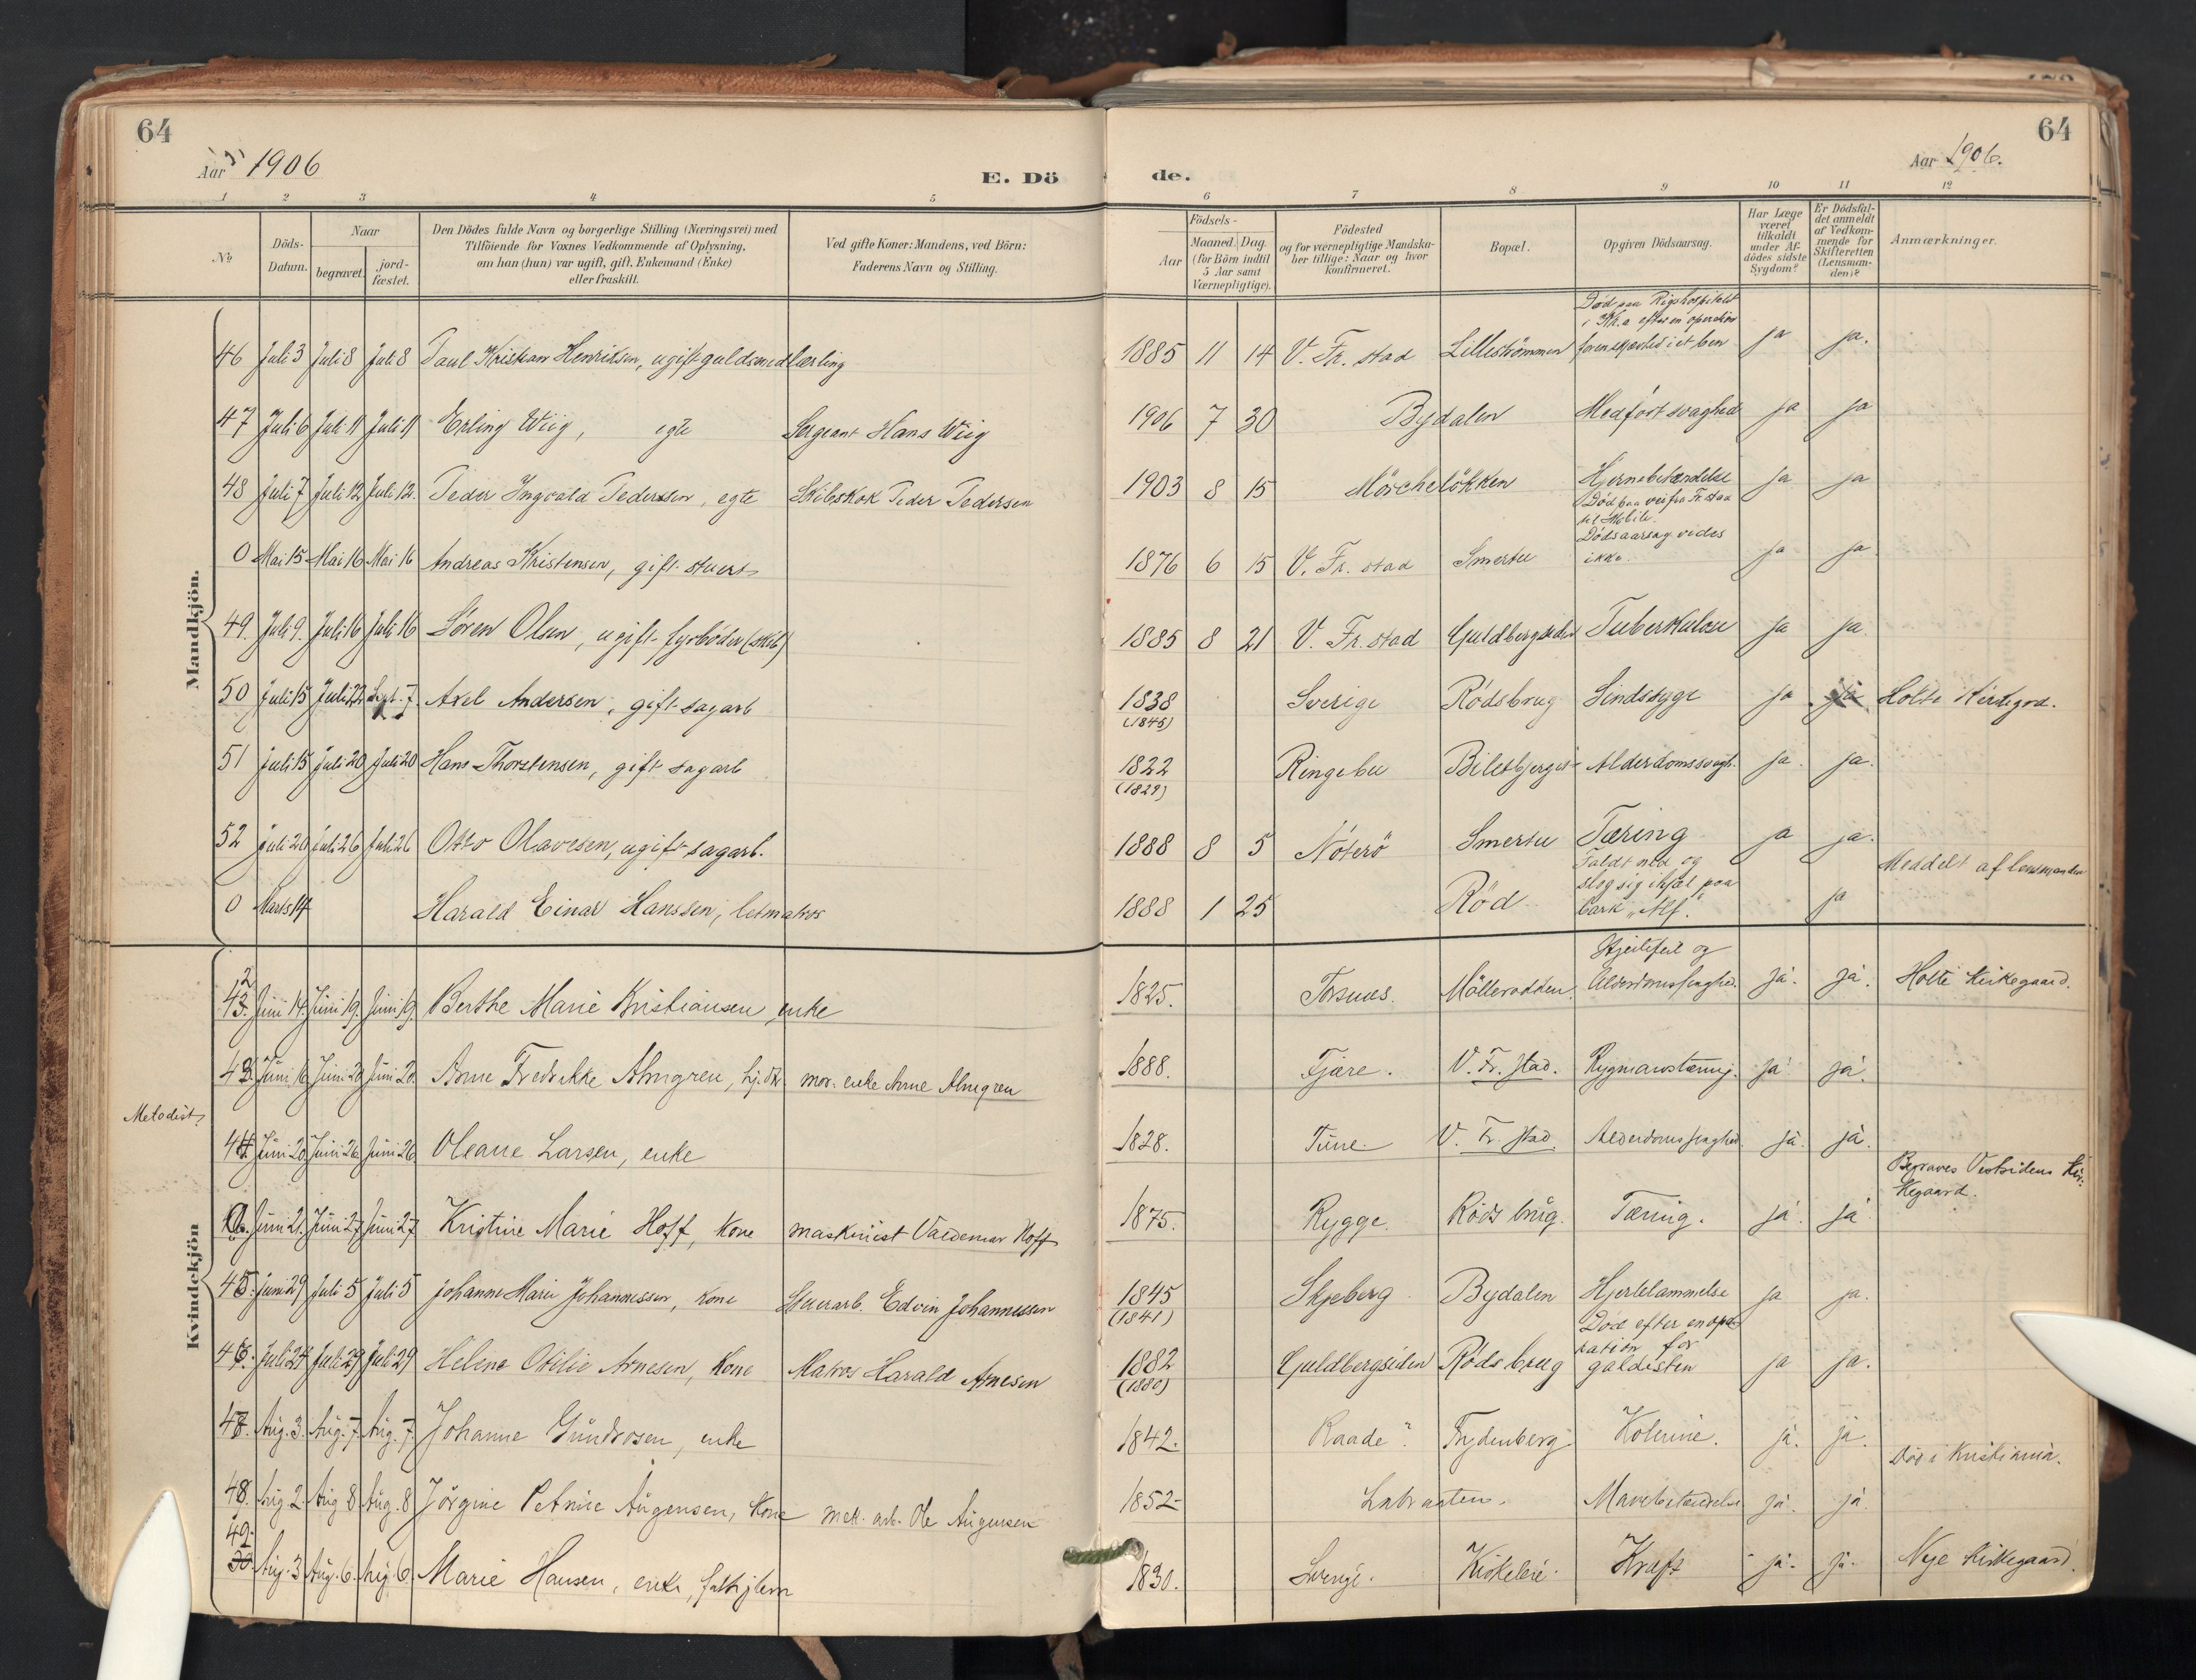 64
Aar 1906
E. Dö
1 2 3 4 5
No
Döds-
Datum.
Naar
begravet.
jord-
fæstet.
Den Dödes fulde Navn og borgerlige Stilling (Næringsvei) med
Tilföiende for Voxnes Vedkommende af Oplysning,
om han (hun) var ugift, gift, Enkemand (Enke)
eller fraskilt.
Ved gifte Koner: Mandens, ved Börn:
Faderens Navn og Stilling.
Mandkjön.
46 Juli 3 Juli 8 Juli 8 Paul Kristian Henriksen, ugift guldsmedlærling
47 Juli 6 Juli 11 Juli 11 Erling Wiig, egte Sergeant Hans Wiig
48 Juli 7 Juli 12 Juli 12. Peder Ingvald Pedersen, egte Skibskok Peder Pedersen
0 Mai 15 Mai 16 Mai 16 Andreas Kristensen, gift stuert
49. Juli 9. Juli 16 Juli 16 Søren Olsen, ugift fyrböder (skib)
50 Juli 15 Juli 22 Sept. 7. Axel Andersen, gift sagarb
51 Juli 15 Juli 20 Juli 20 Hans Thorstensen, gift sagarb
52 Juli 20 Juli 26 Juli 26 Otto Olavesen, ugift sagarb.
0 Marts 14 Harald Einar Hanssen, letmatros
Metodist
Kvindekjön
42 Juni 14. Juni 19. Juni 19. Berthe Marie Kristiansen enke
43. Juni 16 Juni 20 Juni 20. Anne Fredrikke Almgren, hj. dtr. mor. enke Anne Almgren
44 Juni 20 Juni 26 Juni 26. Oleane Larsen, enke
Juni 21. Juni 27 Juni 27 Kristine Marie Hoff, kone maskinist Valdemar Hoff
45. Juni 29 Juli 5 Juli 5 Johanne Marie Johannessen, kone Stuerarb. Edvin Johannessen
46. Juli 24 Juli 29 Juli 29 Helene Otilie Arnesen, kone Matros Harald Arnesen
47. Aug. 3. Aug. 7. Aug. 7. Johanne Gundrosen, enke
48. Aug. 2. Aug 8 Aug. 8 Jörgine Petrine Augensen, kone mek. arb. Ole Augensen
49.
50 Aug. 3 Aug. 6. Aug. 6. Marie Hansen, enke, fattighjem
64
Aar 1906.
de.
6 7 8 9 10 11 12
Födsels-
Aar
Maaned. Dag.
(for Börn indtil
5 Aar samt
Værnepligtige).
Födested
og for værnepligtige Mandska-
ber tillige: Naar og hvor
konfirmeret.
Bopæl.
Opgiven Dödsaarsag.
Har Læge
været
tilkaldt
under Af-
dödes sidste
Sygdom?
Er Dödsfal-
det anmeldt
af Vedkom-
mende for
Skifteretten
(Lensman-
den)?
Anmærkninger.
Död paa Rigshospitalet
i Kr.a efter en operation
1885 11 14 V. Fr. stad Lilleströmmen for en skjævhed i et ben ja ja.
1906 7 30 Bydalen Medfört svaghed ja ja
1903 8 15 Mörchelökken Hjernebetændelse ja ja
Död paa vei fra Fr. stad
til Mobile.
Dödsaarsag vides
1876 6 15 V. Fr. stad Smertu ikke. ja ja
1885 8 21 V. Fr. stad Guldbergsiden Tuberkulose ja ja
1838 Sverige Rödsbrug Sindssyge ja ja Holte Kirkegrd.
(1845)
1822 Ringebu Bilesbjerget Alderdomssvagh. ja. ja.
(1829)
1888 8 5 Nöterö Smertu Tæring ja ja.
Faldt ned og
slog sig ihjel paa Meddelt af lensmanden
1888 1 25 Röd bark "Alf". ja
Hjertefeil og
1825. Torsnes. Mölleroddem. Alderdomssvaghed. ja. ja. Holte Kirkegaard.
1888. Tjære. V. Fr. stad. Rygmarvstæring. ja ja.
1828. Tune. V. Fr. stad. Alderdomssvaghed. ja. ja.
Begraves Vestsidens Kir-
kegaard.
1875. Rygge. Röds brug. Tæring. ja. ja
1845 Skjeberg Bydalen Hjertelammelse ja ja.
(1841)
Död efter en ope-
ration for
1882 Guldbergsiden Röds brug galdesten ja ja.
(1880)
1842. Raade? Frydenberg Kolerine. ja. ja.
Död i Kristiania.
1852 Labraaten. Mavebetændelse ja. ja.
1830. Sverige. Kirkeleie. Kræft ja. ja. Nye Kirkegaard.